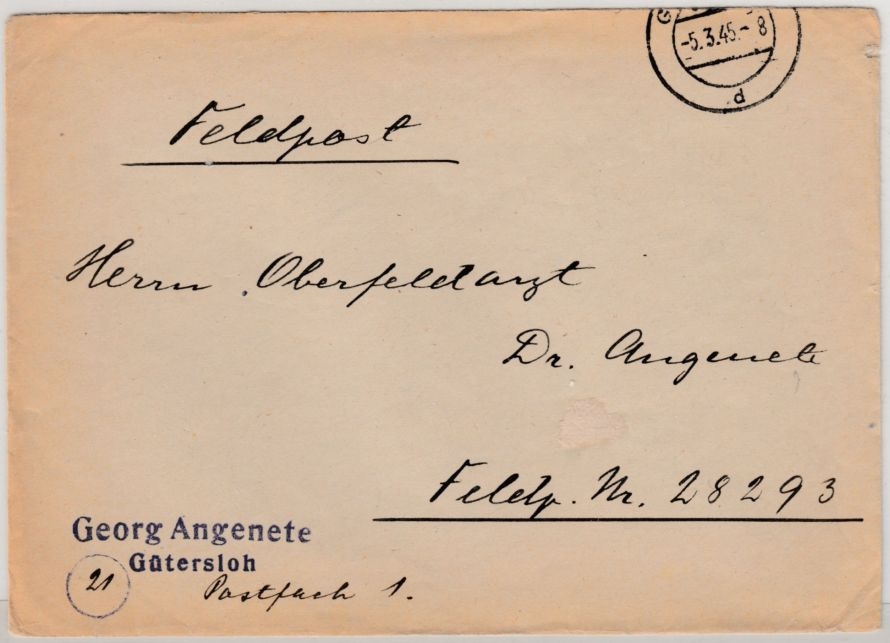 -5.3.45.-8
d
Feldpost
Herrn Oberfeldarzt
Dr. Angenete
Feldp. Nr. 28293
Georg Angenete
Gütersloh
21 Postfach 1.